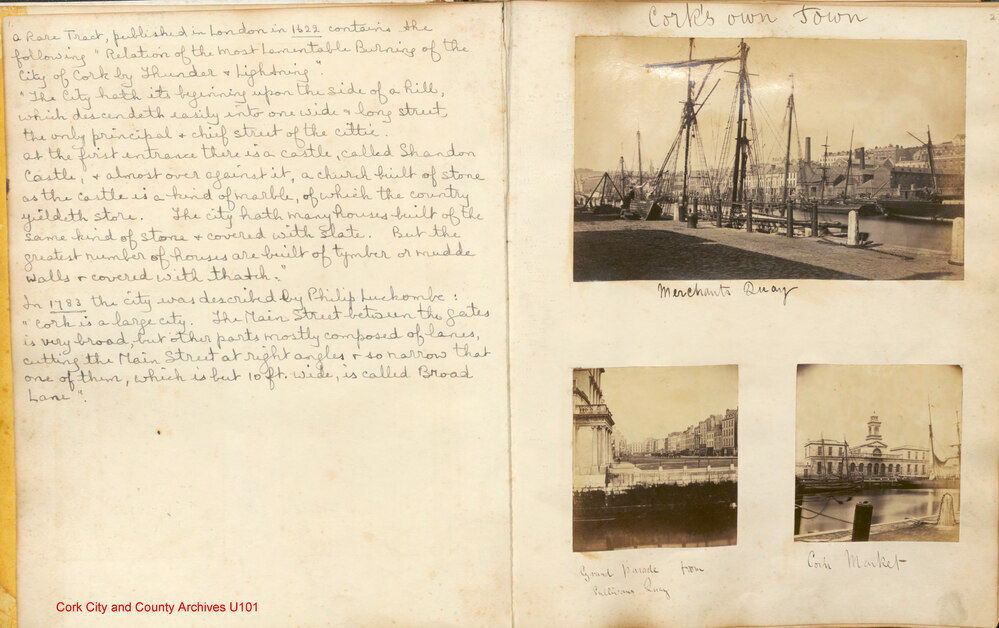 a Rare Tract, published in London in 1622 contains the
following "Relation of the most Lamentable Burning of the
City of Cork by Thunder & Lightning"
"The City hath its beginning upon the side of a hill,
which descendeth easily into one wide & long street,
the only principal & chief street of the cittie.
at the first entrance there is a castle, called Shandon
Castle, & almost over against it, a church built of stone
as the castle is a kind of marble, of which the country
yieldeth store. The city hath many houses built of the
same kind of stone & covered with Slate. But the
greatest number of houses are built of tymber or mudde
walls & covered with thatch."
In 1783 the city was described by Philip Luckombe :
"Cork is a large city. The Main Street between the gates
is very broad, but other parts mostly composed of lanes,
cutting the Main Street at right angles & so narrow that
one of them, which is but 10 ft. wide, is called Broad
Lane".
Cork City and County Archives U101
Cork's own Town
2
Merchants Quay
Grand Parade from
Sullivans Quay
Corn Market